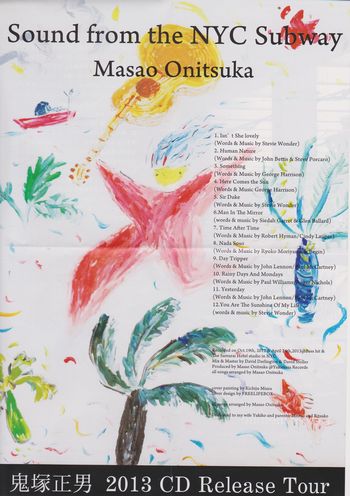 Sound from the NYC Subway
Masao Onitsuka
1. Isn't She lovely
(Words & Music by Stevie Wonder)
2. Human Nature
(Words & Music by John Bettis & Steve Porcaro)
3. Something
(Words & Music by George Harrison)
4. Here Comes the Sun
(Words & Music George Harrison)
5. Sir Duke
(Words & Music by Stevie Wonder)
6.Man In The Mirror
(words & music by Siedah Garret & Glen Ballard)
7. Time After Time
(Words & Music by Robert Hyman/Cindy Lauper)
8. Nada Sousou
(Words & Music by Ryoko Moriyama/Begin)
9. Day Tripper
(Words & Music by John Lennon/Paul McCartney)
10. Rainy Days And Mondays
(Words & Music by Paul Williams/Roger Nichols)
11. Yesterday
(Words & Music by John Lennon/Paul McCartney)
12.You Are The Sunshine Of My Life
(words & music by Stevie Wonder)
Recorded on Oct 19th, 2012 &
the Samurai Hotel studio in NYC
Mix & Master by David Darlington
Produced by Masao Onitsuka Records
all songs arranged by Masao Onitsuka
cover painting by Kichija Miura
cover design by FREELIFEBOX
arranged by Masao Onitsuka
to my wife Yukiko and parents
鬼塚正男 2013 CD Release Tour